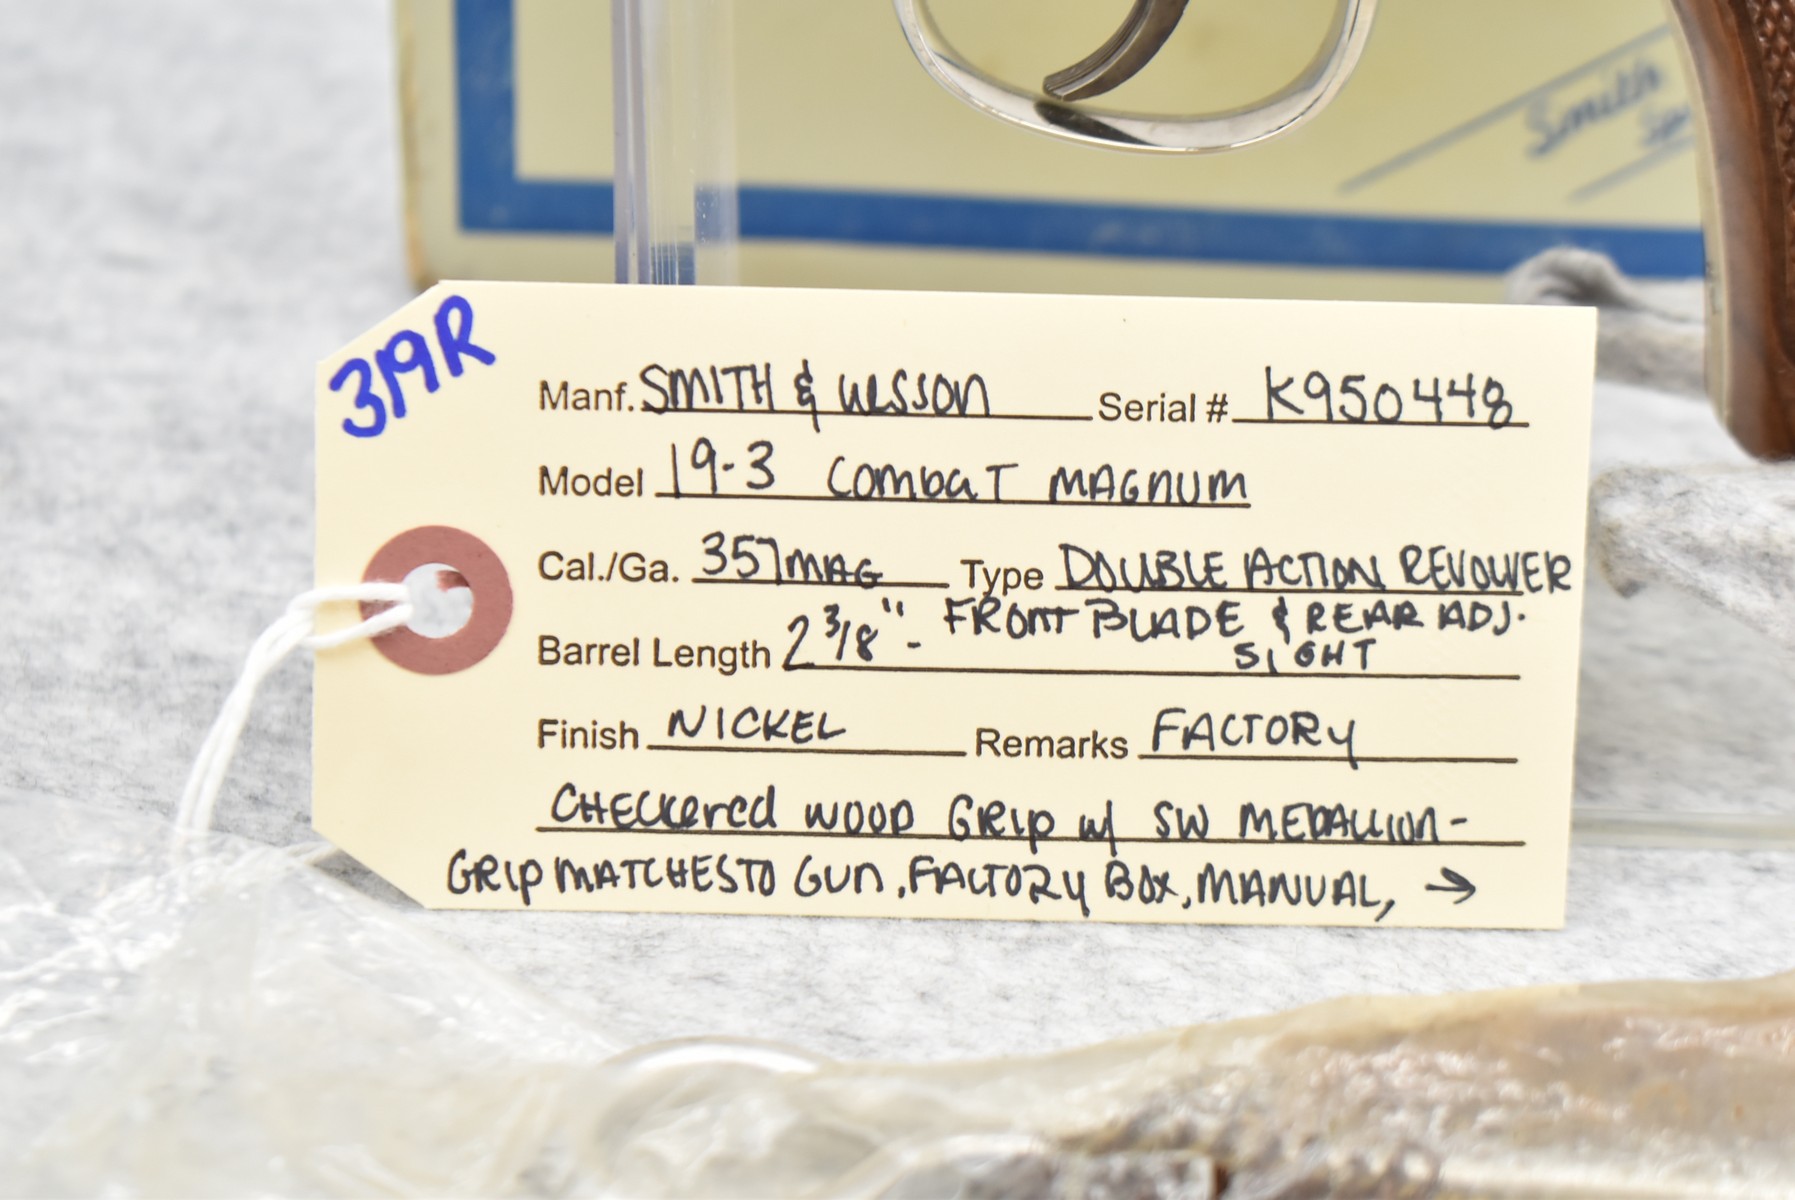 Smith
319R
Manf. SMITH & WESSON Serial # K950448
Model 19-3 COMBAT MAGNUM
Cal./Ga. 357 MAG Type DOUBLE ACTION REVOLVER
Barrel Length 2 3/8" - FRONT BLADE & REAR ADJ.
SIGHT
Finish NICKEL Remarks FACTORY
CHECKERED WOOD GRIP w/ SW MEDALLION -
GRIP MATCHES TO GUN, FACTORY BOX, MANUAL, →